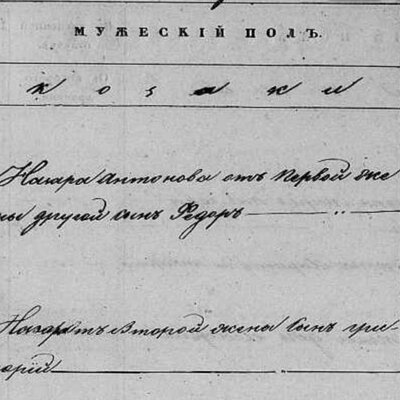 МУЖЕСКІЙ ПОЛЪ.
козаки
Назара Антонова отъ первой же
ны другой сынъ Федоръ
Назара отъ второй жены сынъ Гри
горій